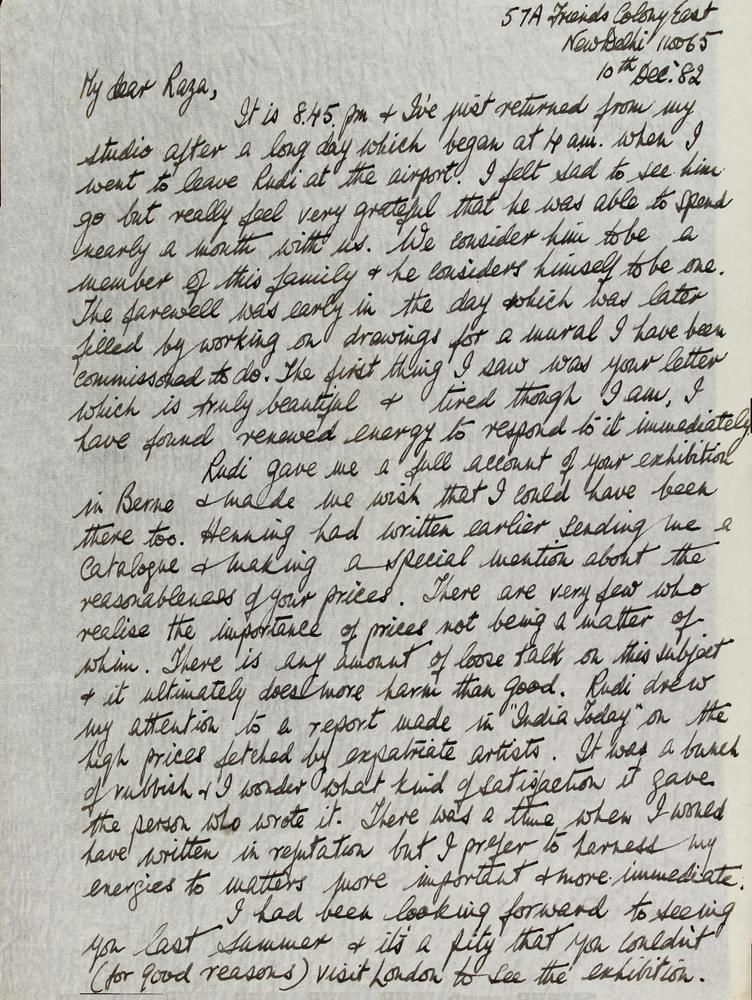 57A Friends Colony East
New Delhi 110065
10th Dec. '82
My dear Raza,
It is 8.45 pm & I've just returned from my
studio after a long day which began at 4 am. when I
went to leave Rudi at the airport. I felt sad to see him
go but really feel very grateful that he was able to spend
nearly a month with us. We consider him to be a
member of this family & he considers himself to be one.
The farewell was early in the day which was later
filled by working on drawings for a mural I have been
commissoned to do. The first thing I saw was your letter
which is truly beautiful & tired though I am, I
have found renewed energy to respond to it immediately
Rudi gave me a full account of your exhibition
in Berne & made me wish that I could have been
there too. Henning had written earlier sending me a
Catalogue & making a special mention about the
reasonableness of your prices. There are very few who
realise the importance of prices not being a matter of
whim. There is any amount of loose talk on this subject
& it ultimately does more harm than good. Rudi drew
my attention to a report made in "India Today" on the
high prices fetched by expatriate artists. It was a bunch
of rubbish & I wonder what kind of satisfaction it gave
the person who wrote it. There was a time when I would
have written in refutation but I prefer to harness my
energies to matters more important & more immediate.
I had been looking forward to seeing
you last summer & it's a pity that you couldn't
(for good reasons) visit London to see the exhibition.